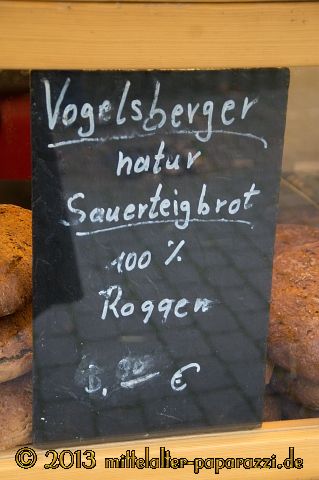 Vogelsberger
natur
Sauerteigbrot
100 %
Roggen
€
© 2013 mittelalter-paparazzi.de ©